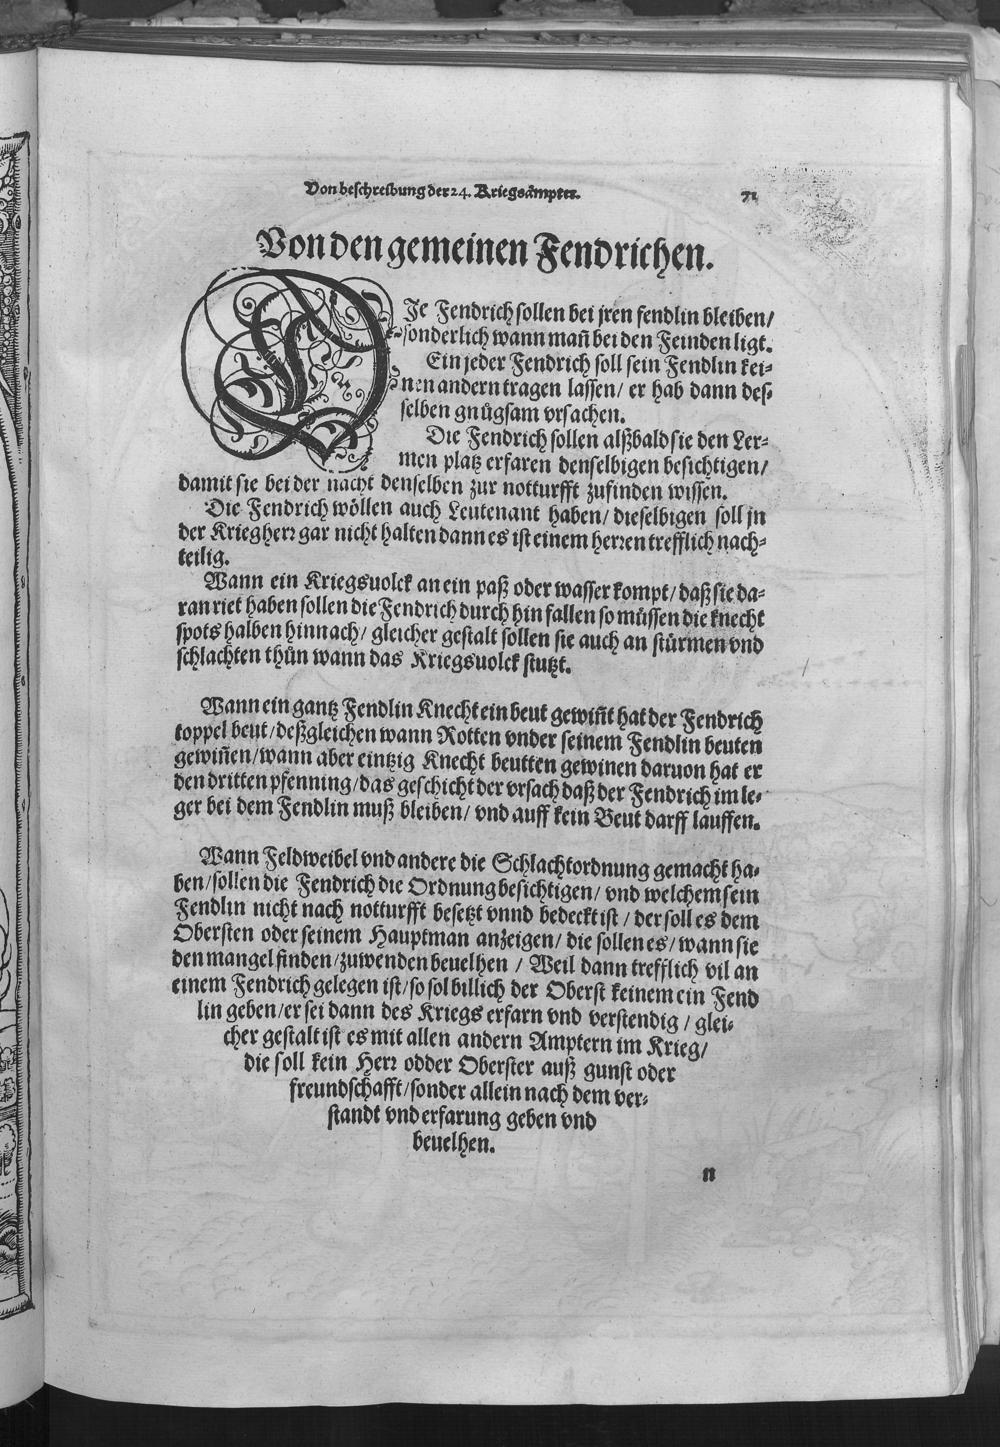 Von beschreibung der 24. Kriegsämpter. 71
Von den gemeinen Fendrichen.
DIe Fendrich sollen bei jren fendlin bleiben/
sonderlich wann mañ bei den Feinden ligt.
Ein jeder Fendrich soll sein Fendlin kei-
nen andern tragen lassen/ er hab dann des-
selben gnůgsam vrsachen.
Die Fendrich sollen alßbald sie den Ler-
men platz erfaren denselbigen besichtigen/
damit sie bei der nacht denselben zur notturfft zufinden wissen.
Die Fendrich wöllen auch Leutenant haben/ dieselbigen soll jn
der Kriegherr gar nicht halten dann es ist einem herren trefflich nach-
teilig.
Wann ein Kriegsuolck an ein paß oder wasser kompt/ daß sie da-
ran riet haben sollen die Fendrich durch hin fallen so müssen die knecht
spots halben hinnach/ gleicher gestalt sollen sie auch an stürmen vnd
schlachten thůn wann das Kriegsuolck stutzt.
Wann ein gantz Fendlin Knecht ein beut gewiñt hat der Fendrich
toppel beut/ deßgleichen wann Rotten vnder seinem Fendlin beuten
gewiñen/ wann aber eintzig Knecht beutten gewinen daruon hat er
den dritten pfenning/ das geschicht der vrsach daß der Fendrich im le-
ger bei dem Fendlin muß bleiben/ vnd auff kein Beut darff lauffen.
Wann Feldweibel vnd andere die Schlachtordnung gemacht ha-
ben/ sollen die Fendrich die Ordnung besichtigen/ vnd welchem sein
Fendlin nicht nach notturfft besetzt vnnd bedeckt ist/ der soll es dem
Obersten oder seinem Hauptman anzeigen/ die sollen es/ wann sie
den mangel finden/ zuwenden beuelhen/ Weil dann trefflich vil an
einem Fendrich gelegen ist/ so sol billich der Oberst keinem ein Fend
lin geben/ er sei dann des Kriegs erfarn vnd verstendig/ glei-
cher gestalt ist es mit allen andern Amptern im Krieg/
die soll kein Herr odder Oberster auß gunst oder
freundschafft/ sonder allein nach dem ver-
standt vnd erfarung geben vnd
beuelhen.
n